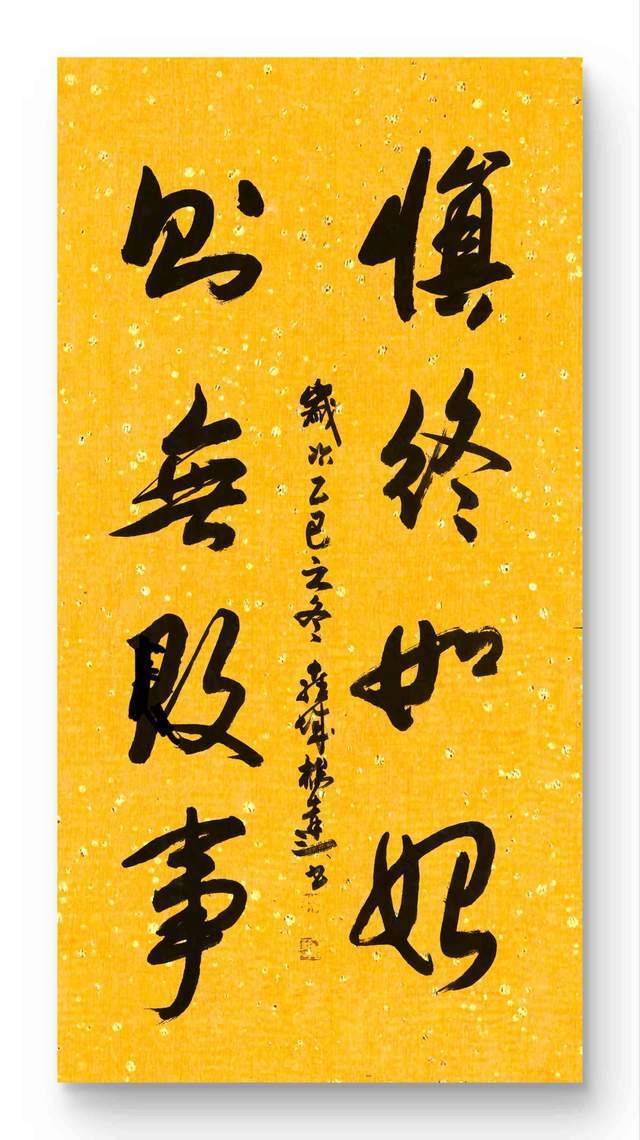 慎終如始
則無敗事
歲次乙巳立冬 城 書